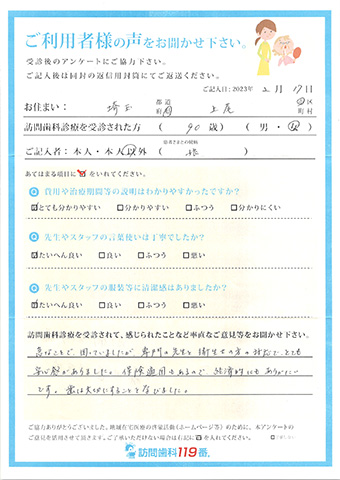 ご利用者様の声をお聞かせ下さい。
受診後のアンケートにご協力下さい。
ご記入後は同封の返信用封筒にてご返送ください。
ご記入日：2023年 2月 17日
お住まい： 埼玉 都道府県 上尾 市区町村
訪問歯科診療を受診された方 （ 90歳） （ 男・女 ）
ご記入者：本人・本人以外 （ 娘 ）
あてはまる項目に☑をいれてください。
Q 費用や治療期間等の説明はわかりやすかったですか？
☑とても分かりやすい □分かりやすい □ふつう □分かりにくい
Q 先生やスタッフの言葉使いは丁寧でしたか？
☑たいへん良い □良い □ふつう □悪い
Q 先生やスタッフの服装等に清潔感はありましたか？
☑たいへん良い □良い □ふつう □悪い
訪問歯科診療を受診されて、感じられたことなど率直なご意見等をお聞かせ下さい。
急なことで、困っていましたが 専門の先生と衛生士の方の対応で、とても
安心感がありました。保険適用もあるので 経済的にもありがたい
です。歯は大切にすることを学びました。
ご協力ありがとうございました。地域在宅医療の啓発活動（ホームページ等）のために、本アンケートの
ご意見を活用させて頂きます。ご了承いただけない場合は右記に☑を入れてください。
訪問歯科119番®